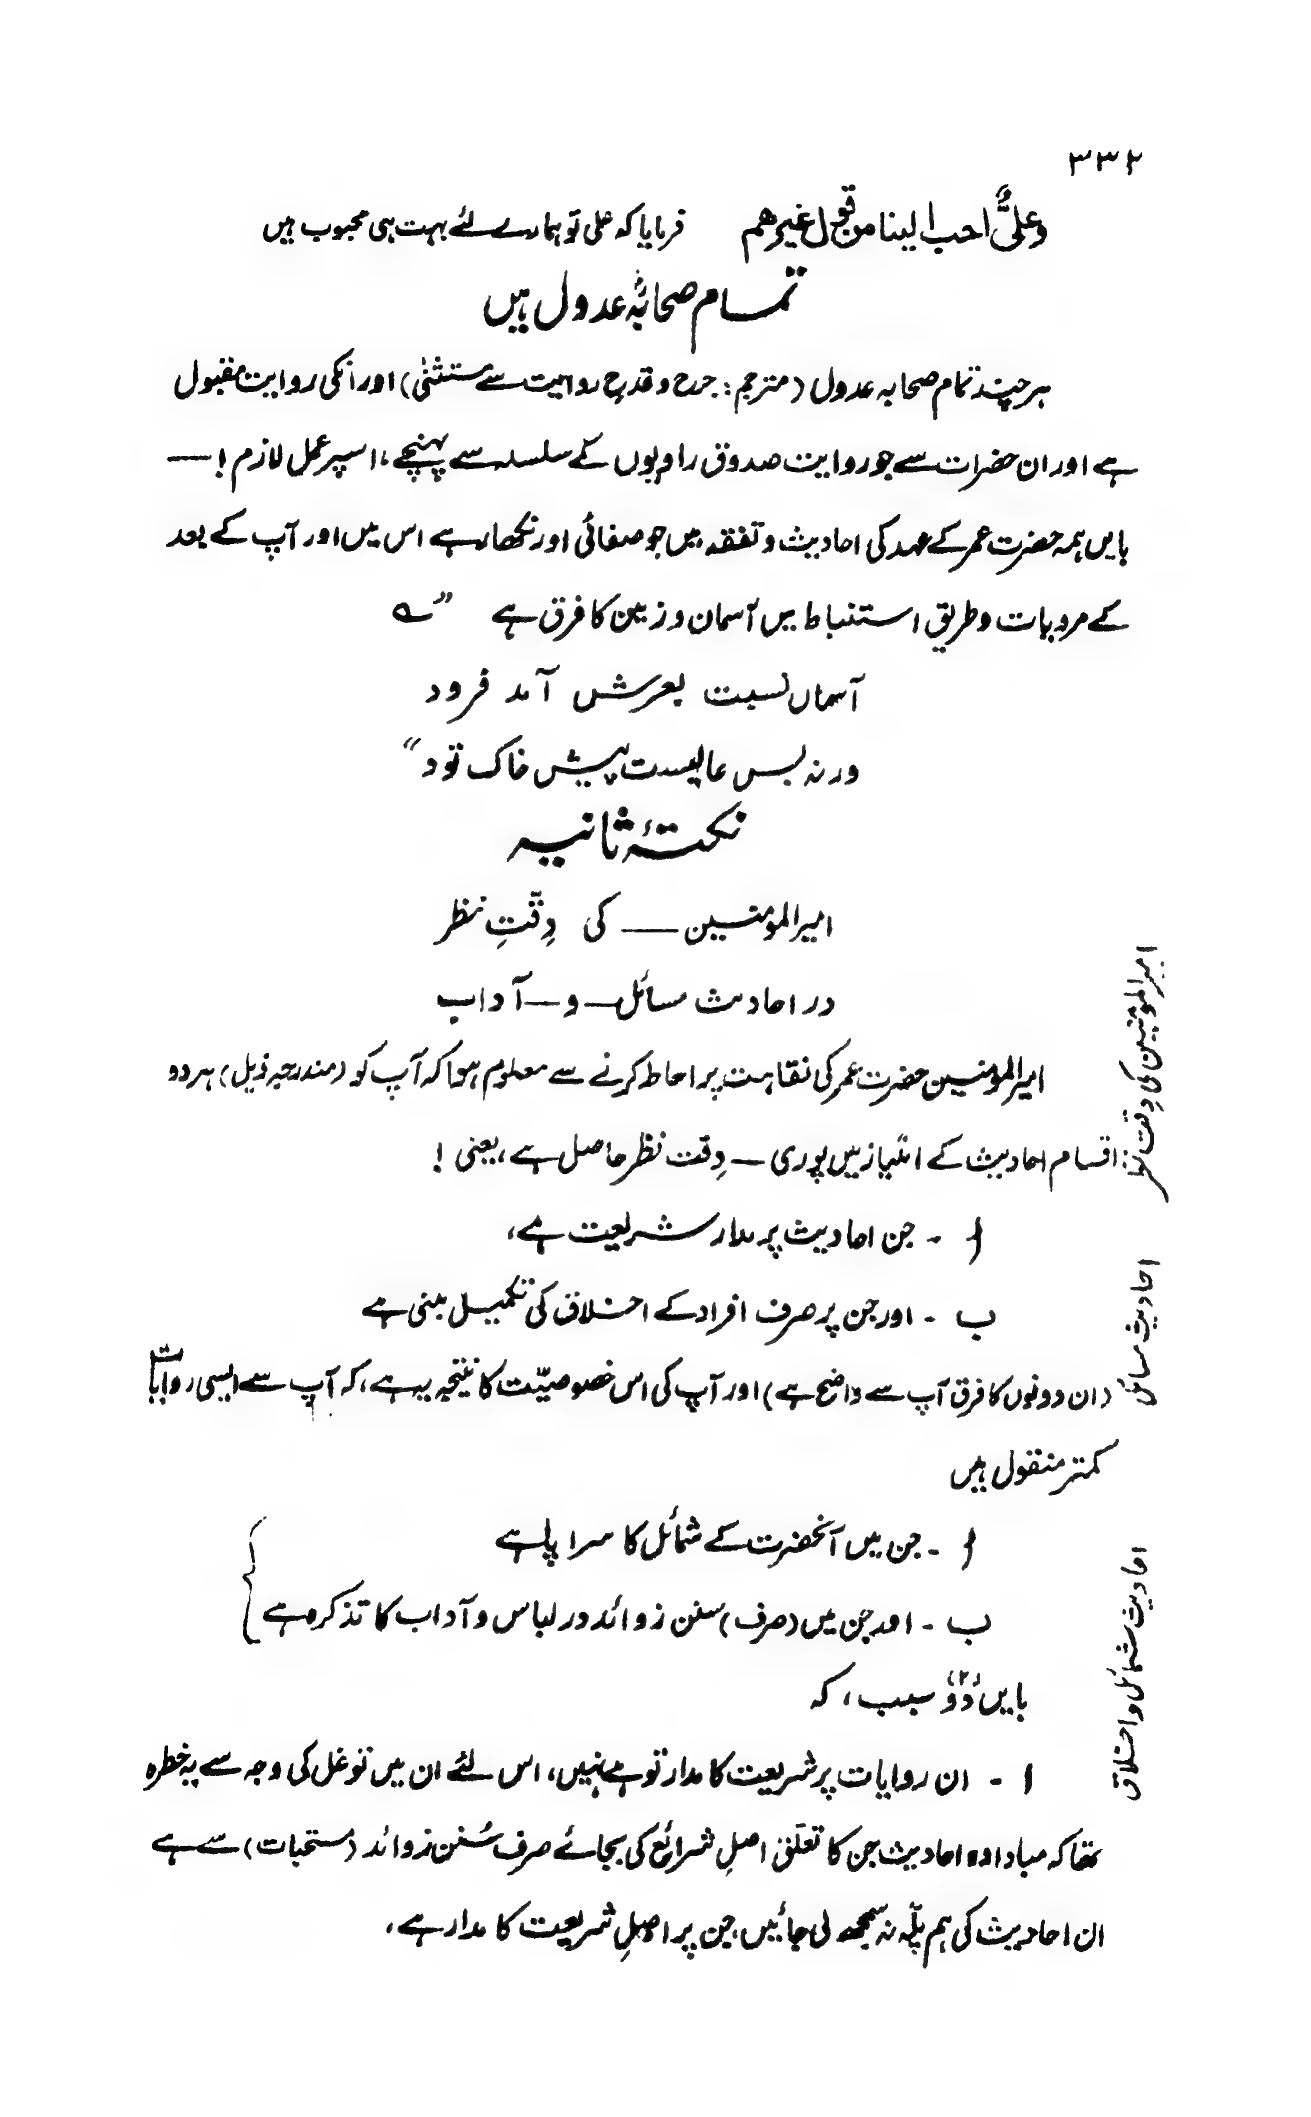 ۳۳۲
وعلیٌّ احب الینا من قول غیرھم فرمایا کہ علی تو ہمارے لئے بہت ہی محبوب ہیں
تمام صحابہؓ عدول ہیں
ہر چند تمام صحابہ عدول (مترجم: جرح و قدح روایت سے مستثنٰی) اور انکی روایت مقبول
ہے اور ان حضرات سے جو روایت صدوق راویوں کے سلسلہ سے پہنچے، اسپر عمل لازم! —
بایں ہمہ حضرت عمر کے عہد کی احادیث و تفقہ میں جو صفائی اور نکھار ہے اس میں اور آپ کے بعد
کے مرویات و طریق استنباط میں آسمان و زمین کا فرق ہے ” ؎
آسماں نسبت بعرشں آمد فرود
ورنہ بس عالیست پیش خاک تود“
نکتۂ ثانیہ
امیرالمومنین — کی دِقّتِ نظر
در احادیث مسائل — و — آداب
امیرالمومنین حضرت عمر کی نقاہت پر احاطہ کرنے سے معلوم ہوا کہ آپ کو (مندرجہ ذیل) ہر دو
اقسام احادیث کے امتیاز میں پوری — دِقت نظر حاصل ہے، یعنی!
ا - جن احادیث پر مدار شریعت ہے،
ب - اور جن پر صرف افراد کے اخلاق کی تکمیل مبنی ہے
(ان دونوں کا فرق آپ سے واضح ہے) اور آپ کی اس خصوصیّت کا نتیجہ یہ ہے، کہ آپ سے ایسی روایات
کمتر منقول ہیں
ا - جن میں آنحضرت کے شمائل کا سراپا ہے
ب - اور جن میں (صرف) سنن زوائد در لباس و آداب کا تذکرہ ہے
بایں دُوْ (۲) سبب، کہ
ا - ان روایات پر شریعت کا مدار تو ہے نہیں، اس لئے ان میں توغل کی وجہ سے یہ خطرہ
تھا کہ مبادا وہ احادیث جن کا تعلق اصلِ شرائع کی بجائے صرف سُنن زوائد (مستحبات) سے ہے
ان احادیث کی ہم پلّہ نہ سمجھ لی جائیں جن پر اصلِ شریعت کا مدار ہے،
امیرالمؤمنین کی دِقت نظر:
احادیث مسائل
احادیث شمائل و اخلاق